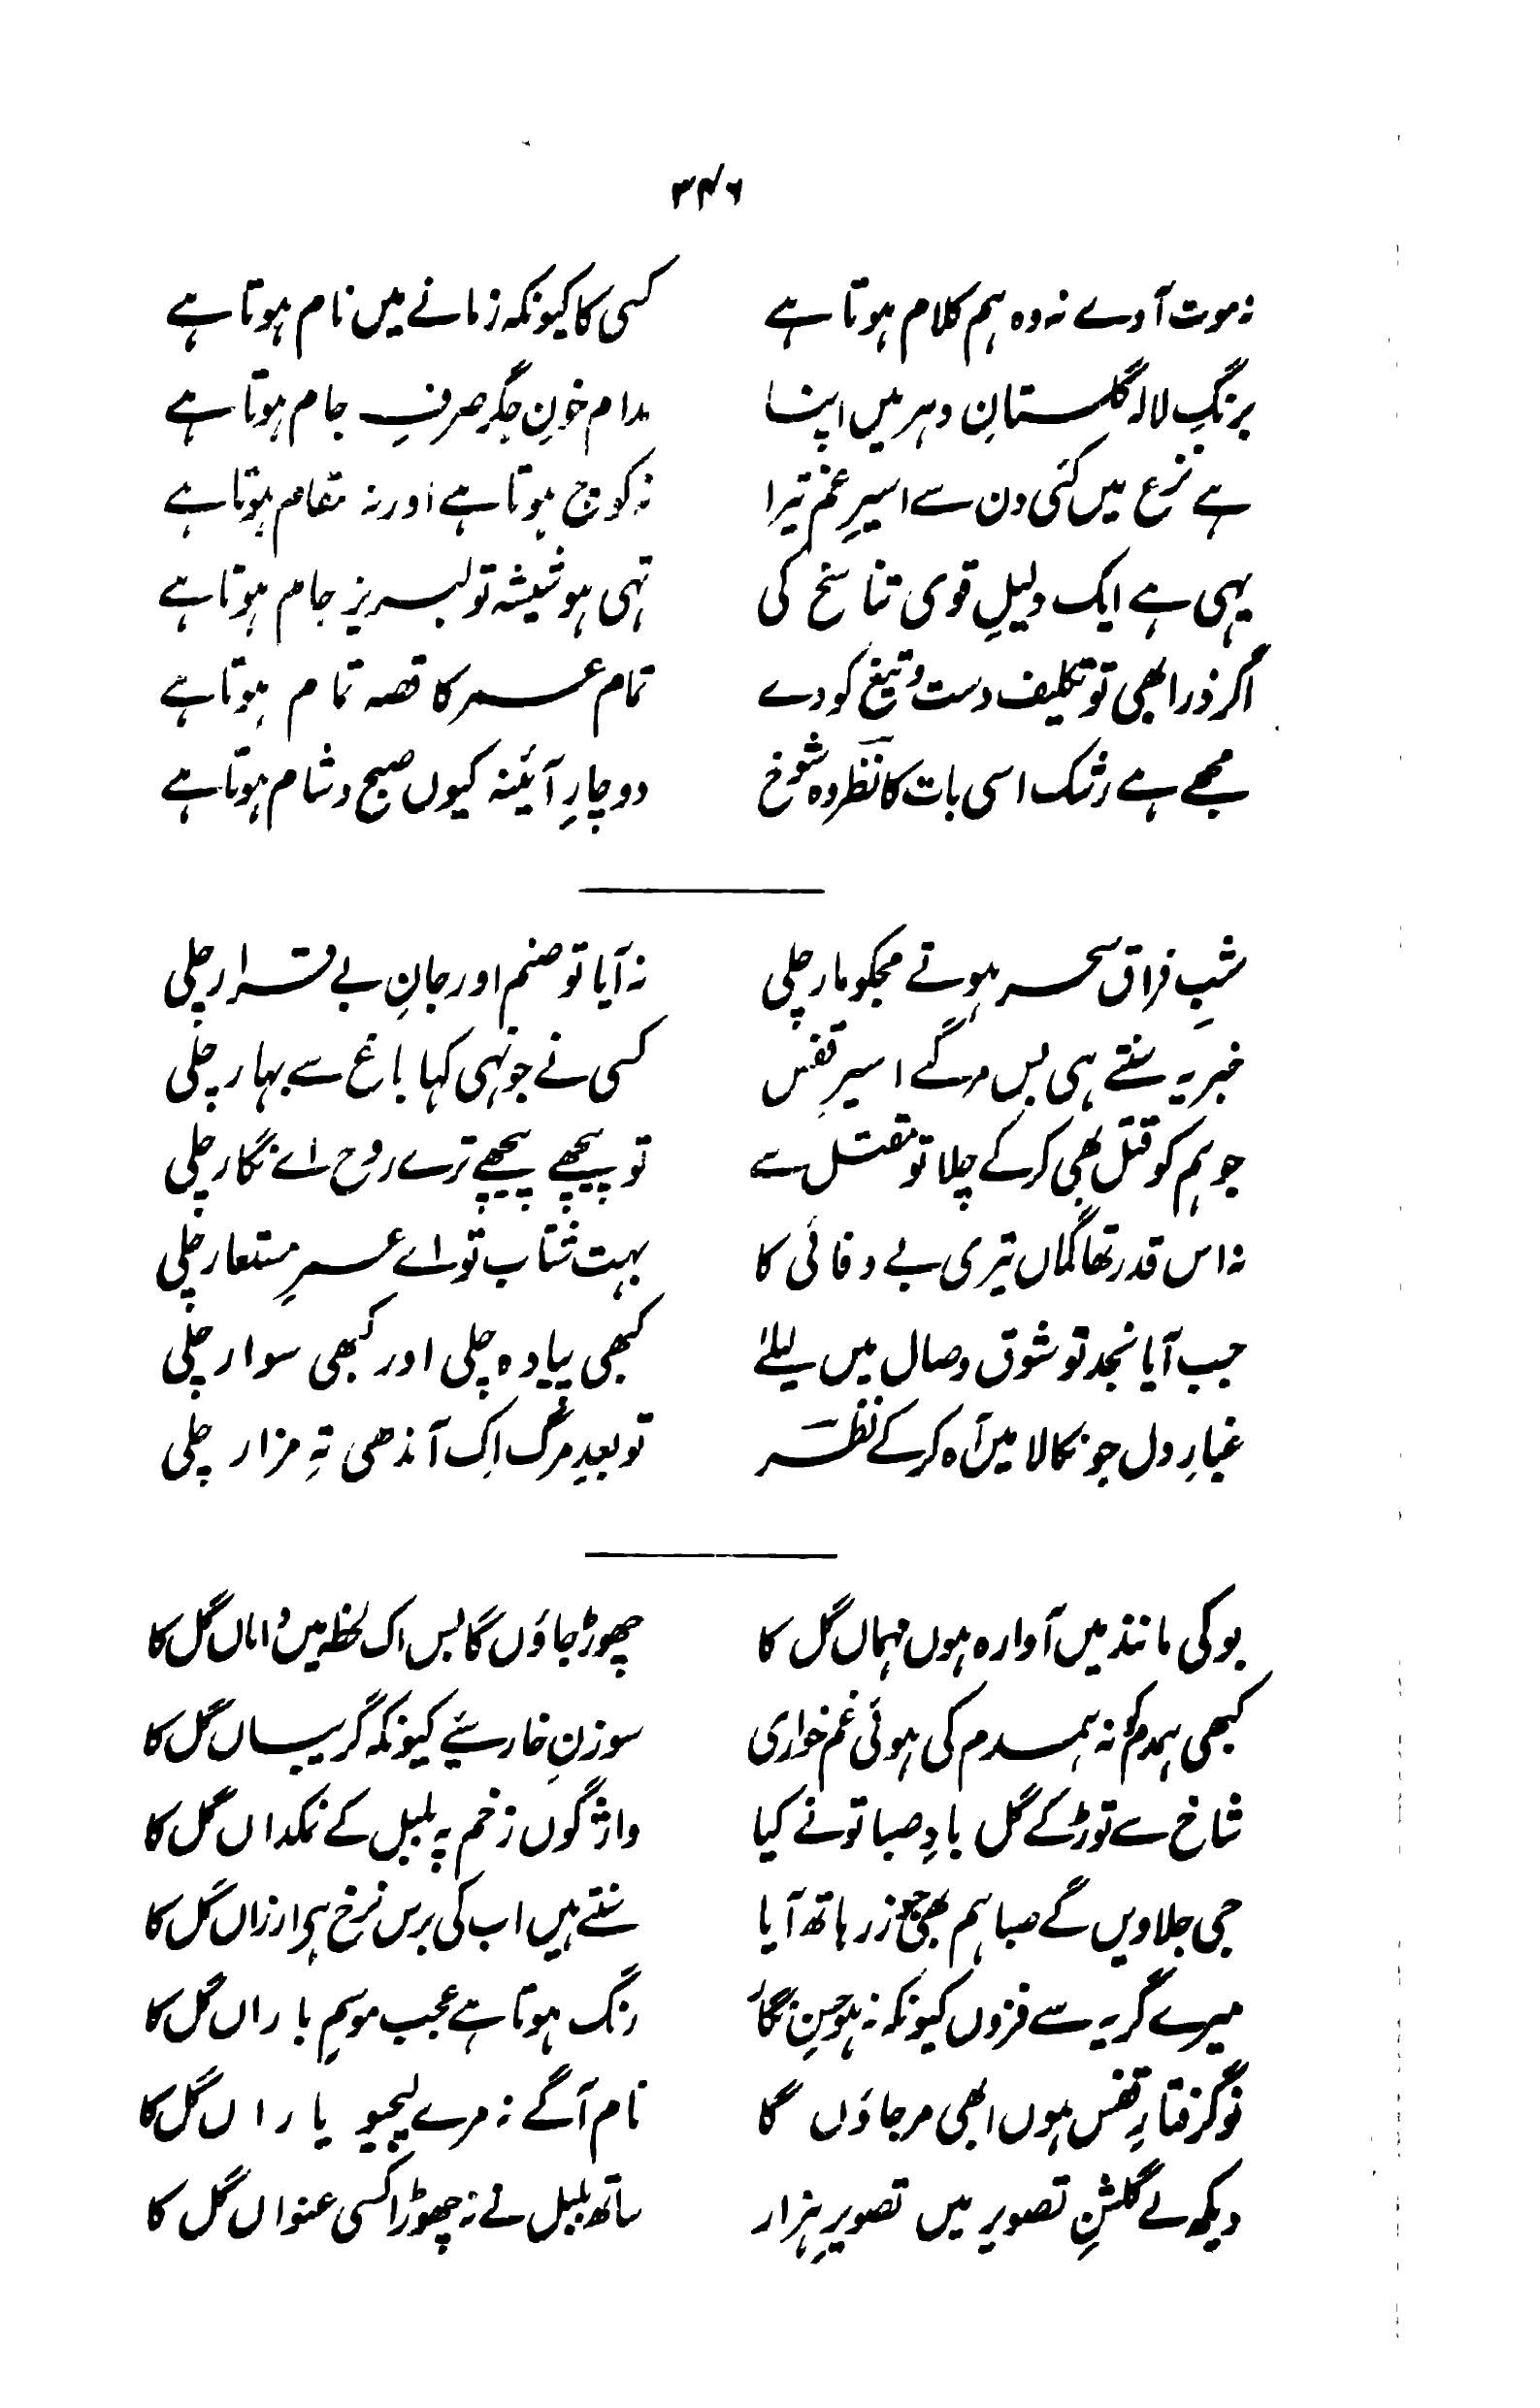 ۳۴۶
نہ موت آوے نہ وہ ہم کلام ہوتا ہے کسی کا کیونکہ زمانے میں نام ہوتا ہے
برنگِ لالہ گلستانِ دہر میں اپنا مدام خونِ جگر صرفِ جام ہوتا ہے
ہے نزع میں کئی دن سے اسیرِ غم تیرا نہ کوچ ہوتا ہے اور نہ مقام ہوتا ہے
یہی ہے ایک دلیلِ قوی تناسخ کی تہی ہو شیشہ تو لبریز جام ہوتا ہے
اگر ذرا بھی تو تکلیف دست و تیغ کو دے تمام عمر کا قصہ تمام ہوتا ہے
مجھے ہے رشک اسی بات کا نظرؔ وہ شوخ دو چارِ آئینہ کیوں صبح و شام ہوتا ہے
شبِ فراق سحر ہوتے مجکو مار چلی نہ آیا تو صنم اور جانِ بے قرار چلی
خبر یہ سنتے ہی بس مر گئے اسیرِ قفس کسی نے جونہی کہا باغ سے بہار چلی
جو ہم کو قتل بھی کر کے چلا تو مقتل سے تو پیچھے پیچھے ترے روح اے نگار چلی
نہ اس قدر تھا گماں تیری بے وفائی کا بہت شتاب تو اے عمرِ مستعار چلی
جب آیا نجد تو شوق وصال میں لیلےٰ کبھی پیادہ چلی اور کبھی سوار چلی
غبارِ دل جو نکالا میں آہ کر کے نظرؔ تو بعدِ مرگ اِک آندھی تہِ مزار چلی
بو کی مانند میں آوارہ ہوں مہماں گل کا چھوڑ جاؤں گا بس اک لحظہ میں داماں گل کا
کبھی ہمدم کو نہ ہمدم کی ہوئی غم خواری سوزنِ خار سئے کیونکہ گریباں گل کا
شاخ سے توڑ کے گل بادِ صبا تو نے کیا واژگوں زخم پہ بلبل کے نمکداں گل کا
جی جلاویں گے صبا ہم بھی جو زر ہاتھ آیا سنتے ہیں اب کی برس نرخ ہے ارزاں گل کا
میرے گریہ سے فزوں کیونکہ نہ ہو حسنِ نگار رنگ ہوتا ہے عجب موسمِ باراں گل کا
نو گرفتارِ قفس ہوں ابھی مر جاؤں گا نام آگے نہ مرے لیجیو یاراں گل کا
دیکھ لے گلشنِ تصویر میں تصویرِ ہزار ساتھ بلبل نے نہ چھوڑا کسی عنواں گل کا